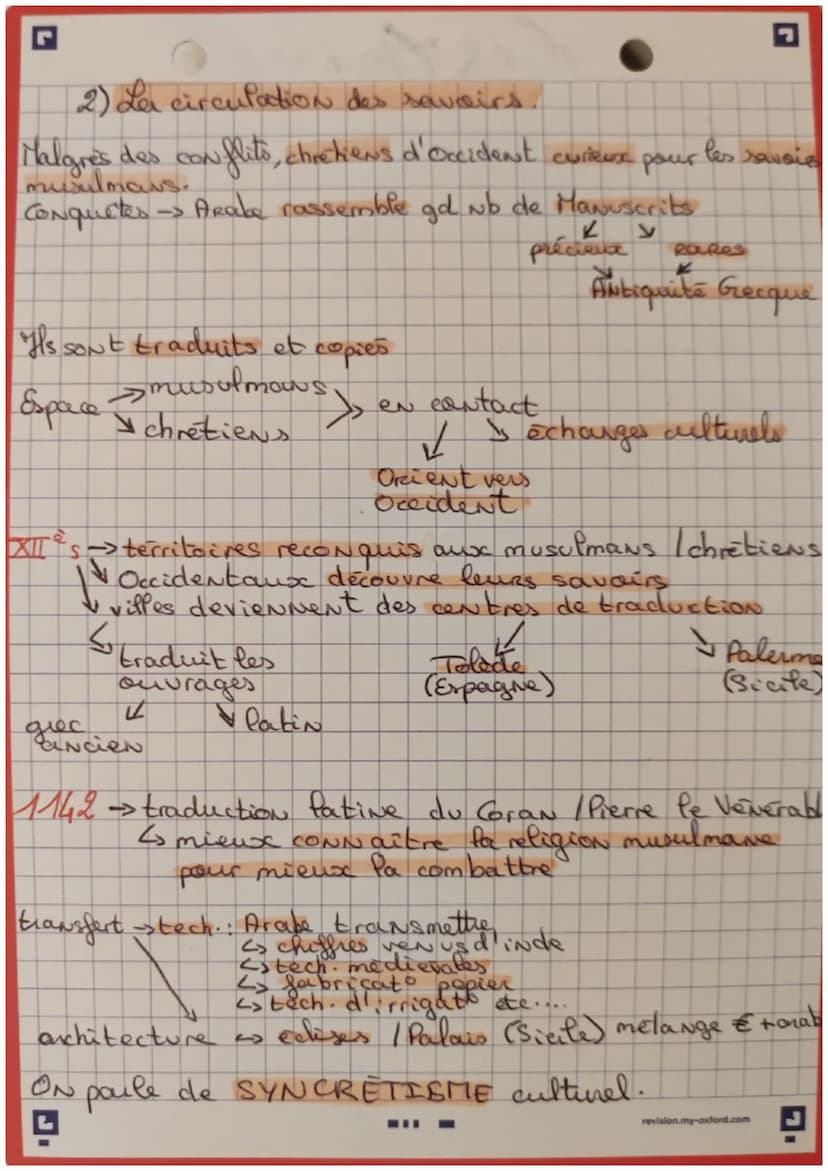 2) La circulation des savoirs.
Malgrès des conflits, chrétiens d'occident curieux pour les savoirs
musulmans.
Conquêtes → Arabe rassemble gd nb de Manuscrits
↙ ↘
précieux rares
↘ ↙
Antiquité Grecque
Ils sont traduits et copiés
Espace → musulmans
↘ chrétiens
>> en contact
↙ ↘ échanges culturels
Orient vers
Occident
XIIè s → territoires reconquis aux musulmans / chrétiens
↓ Occidentaux découvre leurs savoirs
↓ villes deviennent des centres de traduction
↳ traduit les
ouvrages
↙ Tolède
(Espagne)
↘ Palerme
(Sicile)
↙ ↘ latin
grec
ancien
1142 → traduction latine du Coran / Pierre le Vénérabl
↳ mieux connaître la religion musulmane
pour mieux la combattre
transfert → tech.: Arabe transmettre
↳ chiffres venus d'inde
↳ tech. médiévales
↳ fabricat° papier
↳ tech. d'irrigat° etc....
architecture ↔ eclises / Palais (Sicile) mélange € + arab
On parle de SYNCRÉTISME culturel.
revision.my-oxford.com